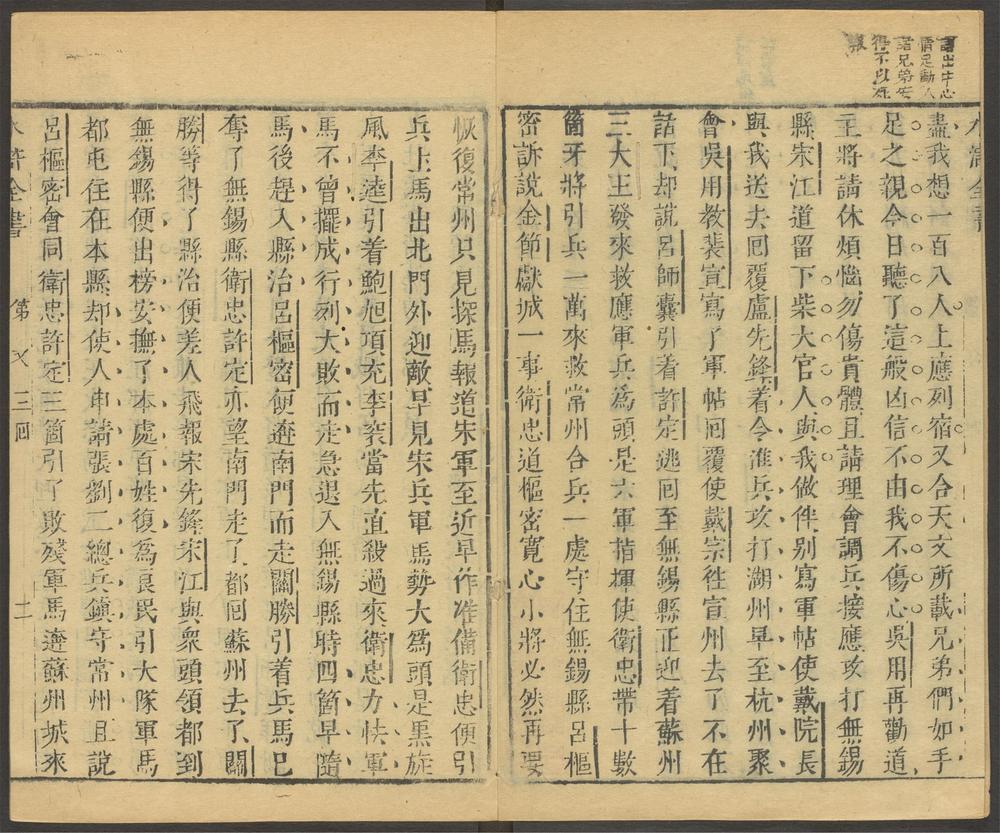 盡我想一百八人上應列宿又合天文所載兄弟們如手
足之親今日聽了這般凶信不由我不傷心吳用再勸道
主將請休煩惱勿傷貴體且請理會調兵接應攻打無錫
縣宋江道留下柴大官人與我做伴別寫軍帖使戴院長
與我送去回覆盧先鋒着令進兵攻打湖州早至杭州聚
會吳用教裴宣寫了軍帖回覆使戴宗徃宣州去了不在
話下却說呂師囊引着許定逃回至無錫縣正迎着蘇州
三大王發來救應軍兵為頭是六軍指揮使衛忠帶十數
箇牙將引兵一萬來救常州合兵一處守住無錫縣呂樞
密訴說金節獻城一事衛忠道樞密寬心小將必然再要
恢復常州只見探馬報道宋軍至近早作准備衛忠便引
兵上馬出北門外迎敵早見宋兵軍馬勢大為頭是黑旋
風李逵引着鮑旭項充李袞當先直殺過來衛忠力怯軍
馬不曾擺成行列大敗而走急退入無錫縣時四箇早隨
馬後趕入縣治呂樞密便逩南門而走關勝引着兵馬已
奪了無錫縣衛忠許定亦望南門走了都回蘇州去了關
勝等得了縣治便差人飛報宋先鋒宋江與衆頭領都到
無錫縣便出榜安撫了本處百姓復為良民引大隊軍馬
都屯住在本縣却使人申請張劉二總兵鎮守常州且說
呂樞密會同衛忠許定三箇引了敗殘軍馬逩蘇州城來
水滸全書 第 三回 二